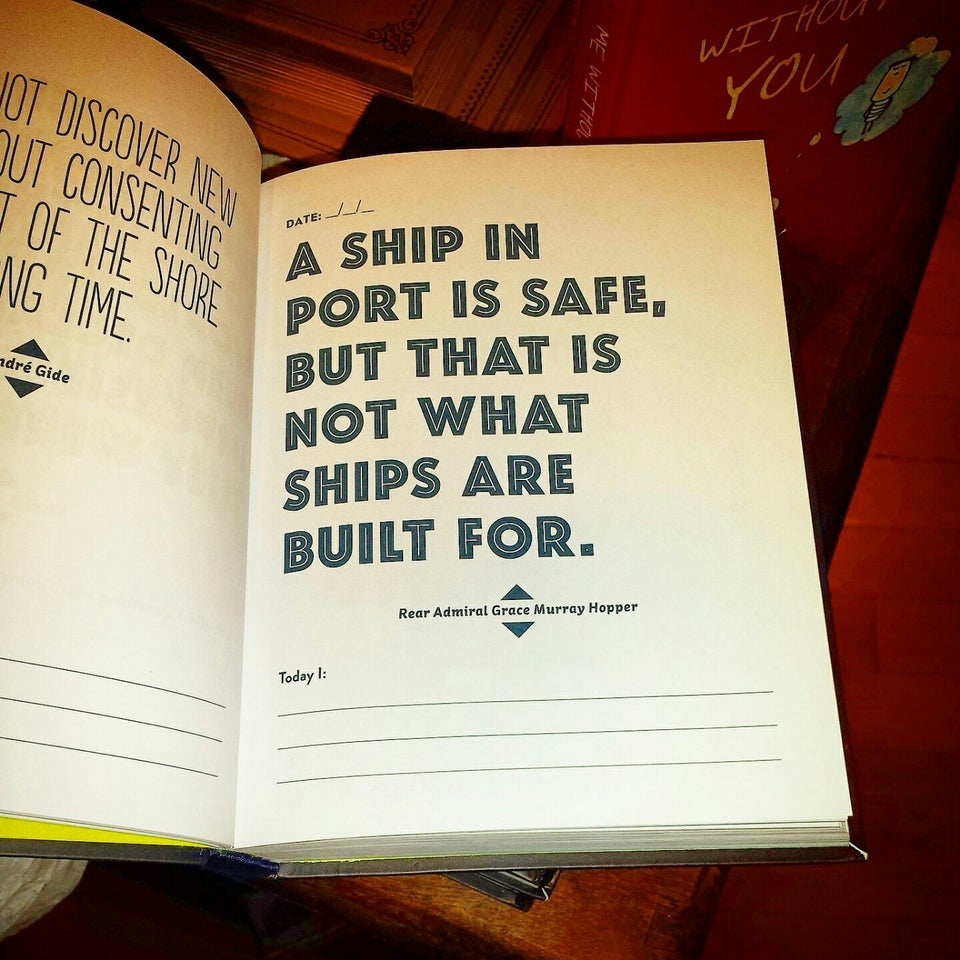 NOT DISCOVER NEW
OUT CONSENTING
OF THE SHORE
TIME.
André Gide
DATE: _/_/_
A SHIP IN
PORT IS SAFE,
BUT THAT IS
NOT WHAT
SHIPS ARE
BUILT FOR.
Rear Admiral Grace Murray Hopper
Today I:
WITHOUT
YOU
ME WITHOU